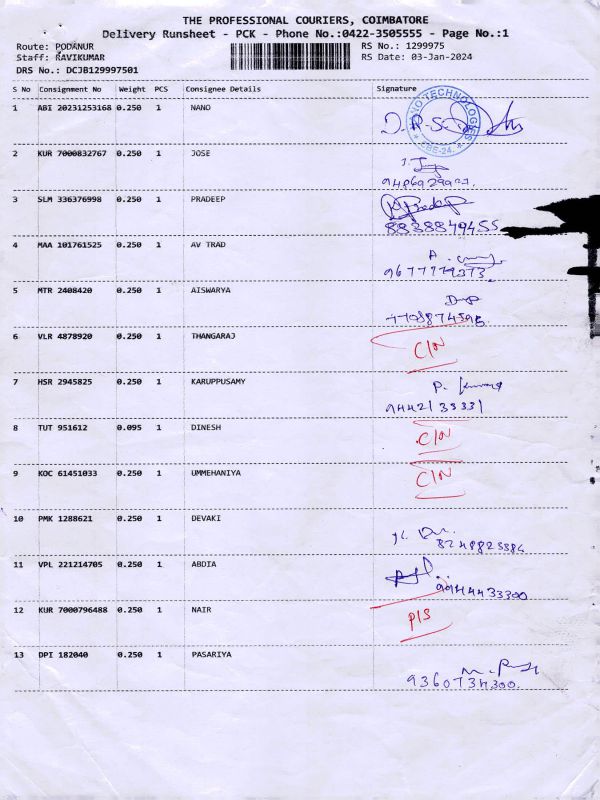 THE PROFESSIONAL COURIERS, COIMBATORE
Delivery Runsheet - PCK - Phone No.:0422-3505555 - Page No.:1
Route: PODANUR RS No.: 1299975
Staff: RAVIKUMAR RS Date: 03-Jan-2024
DRS No.: DCJB129997501
S No Consignment No Weight PCS Consignee Details Signature
1 ABI 20231253168 0.250 1 NANO
NANO TECHNOLOGIES
* CBE-24. *
2 KUR 7000832767 0.250 1 JOSE
3 SLM 336376998 0.250 1 PRADEEP
Pradeep
8838879455
4 MAA 101761525 0.250 1 AV TRAD
5 MTR 2408420 0.250 1 AISWARYA
6 VLR 4878920 0.250 1 THANGARAJ
C/N
7 HSR 2945825 0.250 1 KARUPPUSAMY
9442133331
8 TUT 951612 0.095 1 DINESH
C/N
9 KOC 61451033 0.250 1 UMMEHANIYA
C/N
10 PMK 1288621 0.250 1 DEVAKI
11 VPL 221214705 0.250 1 ABDIA
12 KUR 7000796488 0.250 1 NAIR
P/S
13 DPI 182040 0.250 1 PASARIYA
9360734300.